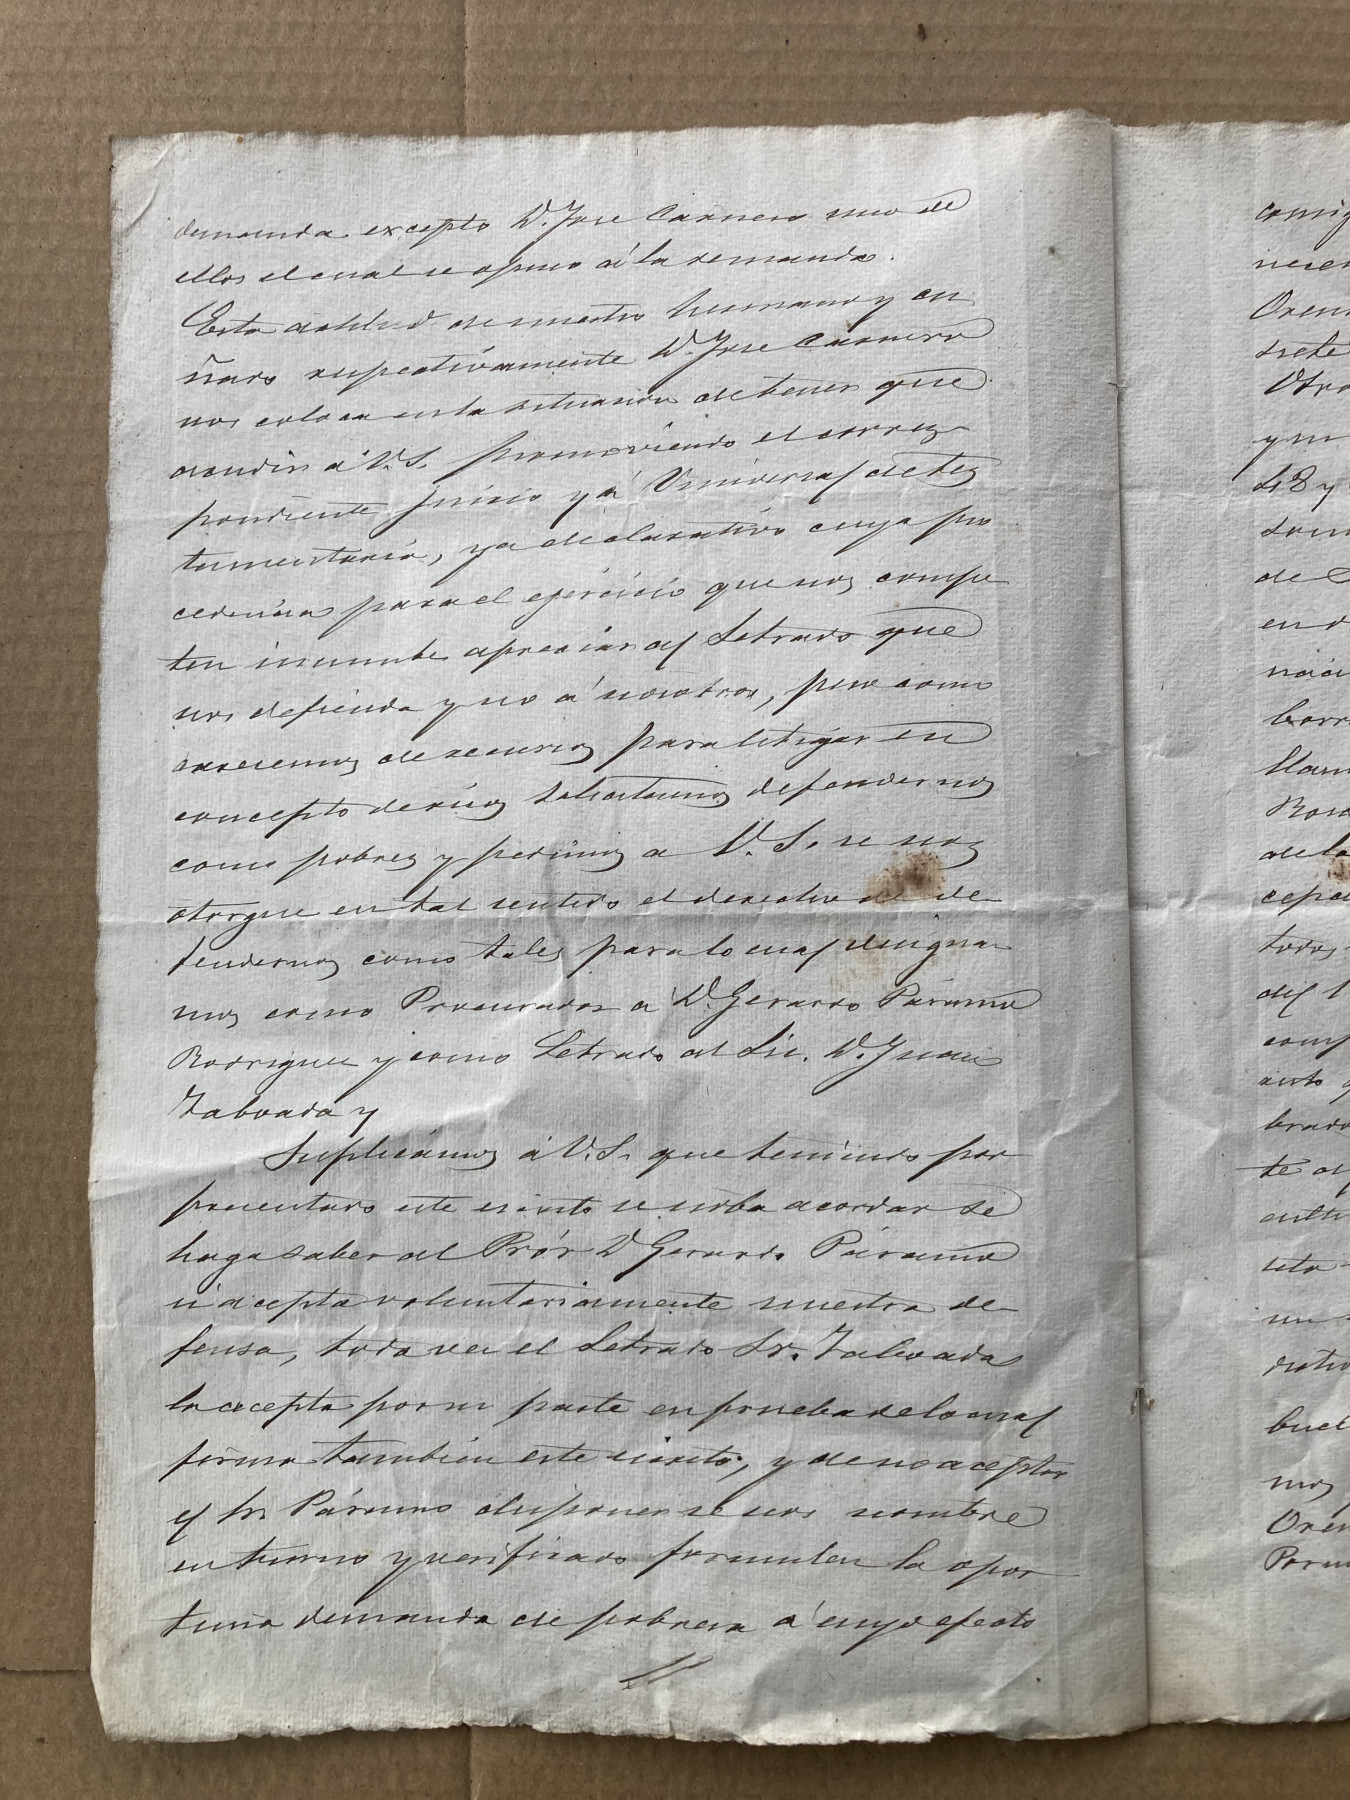 demanda excepto D. Jose Carnero uno de
ellos el cual se opuso á la demanda.
Esta actitud de nuestro hermano y cu
ñado respectivamente D. Jose Carnero
nos coloca en la situacion de tener que
acudir á V.S. promoviendo el corres-
pondiente juicio yá Universal de tes
tamentaria, ya declarativo cuya pro
cedencia para el ejercicio que nos compe
ten incumbe apreciar al Letrado que
nos defienda y no á nosotros, pero como
carecemos de recursos para litigar en
concepto de ricos solicitamos defendernos
como pobres y pedimos a V. S. se nos
otorgue en tal sentido el derecho de de-
fendernos como tales para lo cual designa-
mos como Procurador á D. Gerardo Páramo
Rodriguez y como Letrado al Lic. D. Juan
Taboada y
Suplicámos á V.S. que teniendo por
presentado este escrito se sirva acordar se
haga saber al Prór D Gerardo Páramo
si acepta voluntariamente nuestra de-
fensa, toda vez el Letrado Sr. Taboada
la acepta por su parte en prueba de lo cual
firma tambien este escrito, y de no aceptar
el Sr. Páramo disponer se nos nombre
en turno y verificado formulen la opor
tuna demanda de pobreza á cuyo efecto
comig
Oren
siete
Otro
y su
48 y
de
en d
Borr
llam
Rosa
de la
cepci
todos
del
comp
auto
brado
te al
mos
Oren